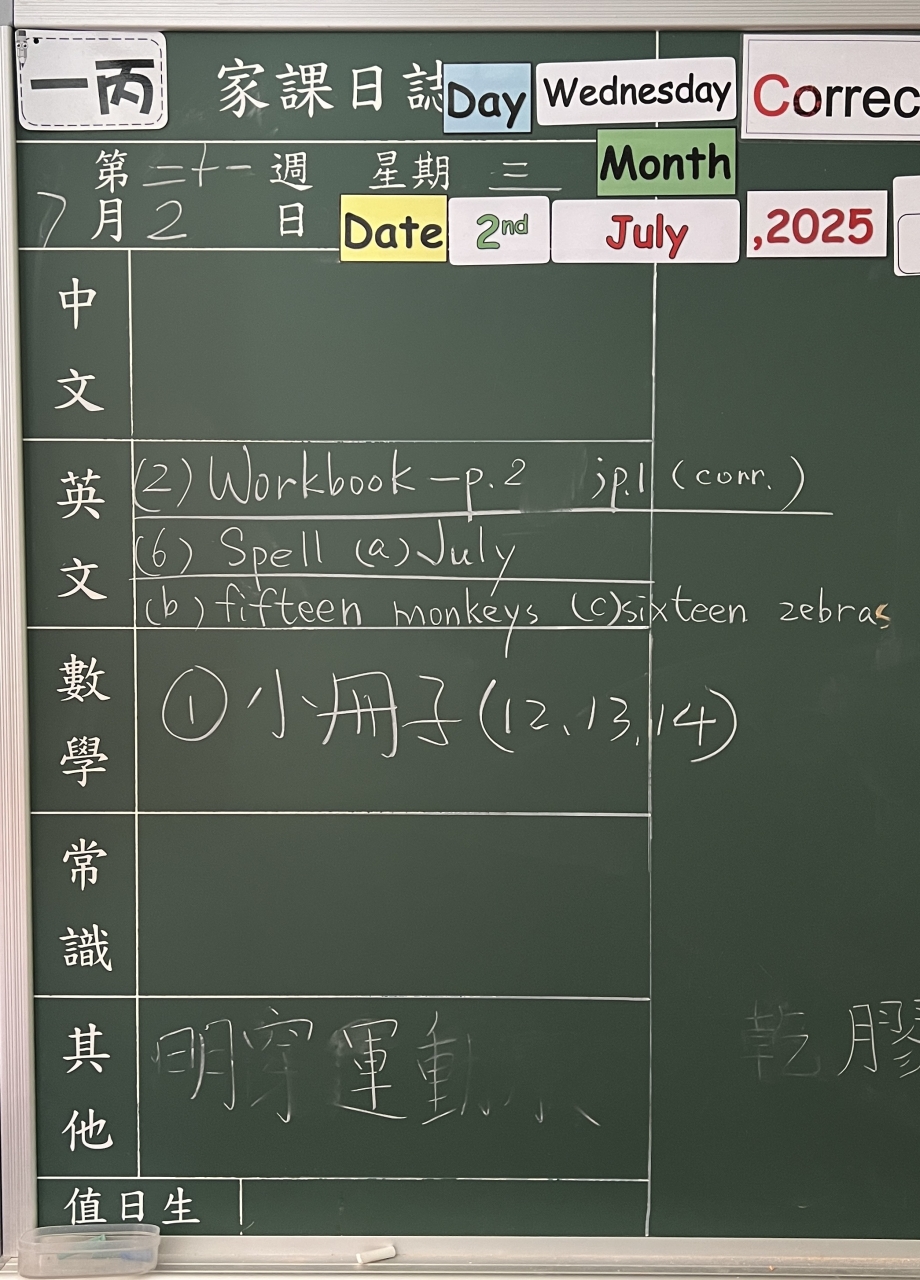 一丙 家課日誌 Day Wednesday Correc
第二十一週 星期 三 Month
7月2日 Date 2nd July ,2025
中文
英文
(2) Workbook – p.2 ;p.1 (corr.)
(6) Spell (a) July
(b) fifteen monkeys (c) sixteen zebras
數學
① 小冊子(12、13、14)
常識
其他
明穿運動
乾膠
值日生